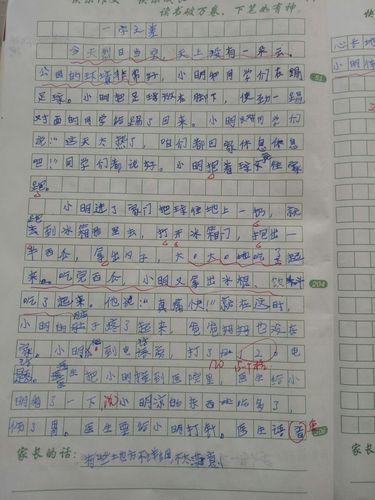 读书破万卷，下笔如有神
一字之差
今天烈日当空，天上没有一朵云。
公园的环境非常好，小明和同学们在踢
足球。小明把足球放在脚下，使劲一踢
对面的同学给踢了回来。小明对同学们
说：“这天太热了，咱们都回家休息休息
吧！”同学们都说好。小明抱着球往家
跑。
小明进了家门把球往地上一扔，就
去到冰箱那里去，打开冰箱门，抱出一
半西瓜，拿出勺子，大口大口地吃了起
来。吃完西瓜，小明又拿出冰棍、饮料
吃了起来。他说：“真痛快！”就在这时，
小明的肚子疼了起来，爸爸妈妈也没在
家。小明 到电话旁，打了120电
话。医生把小明接到医院里，医生给小
明看了一下，说小明凉的东西吃多了，
伤了胃。医生要给小明打针。医生话音
家长的话：